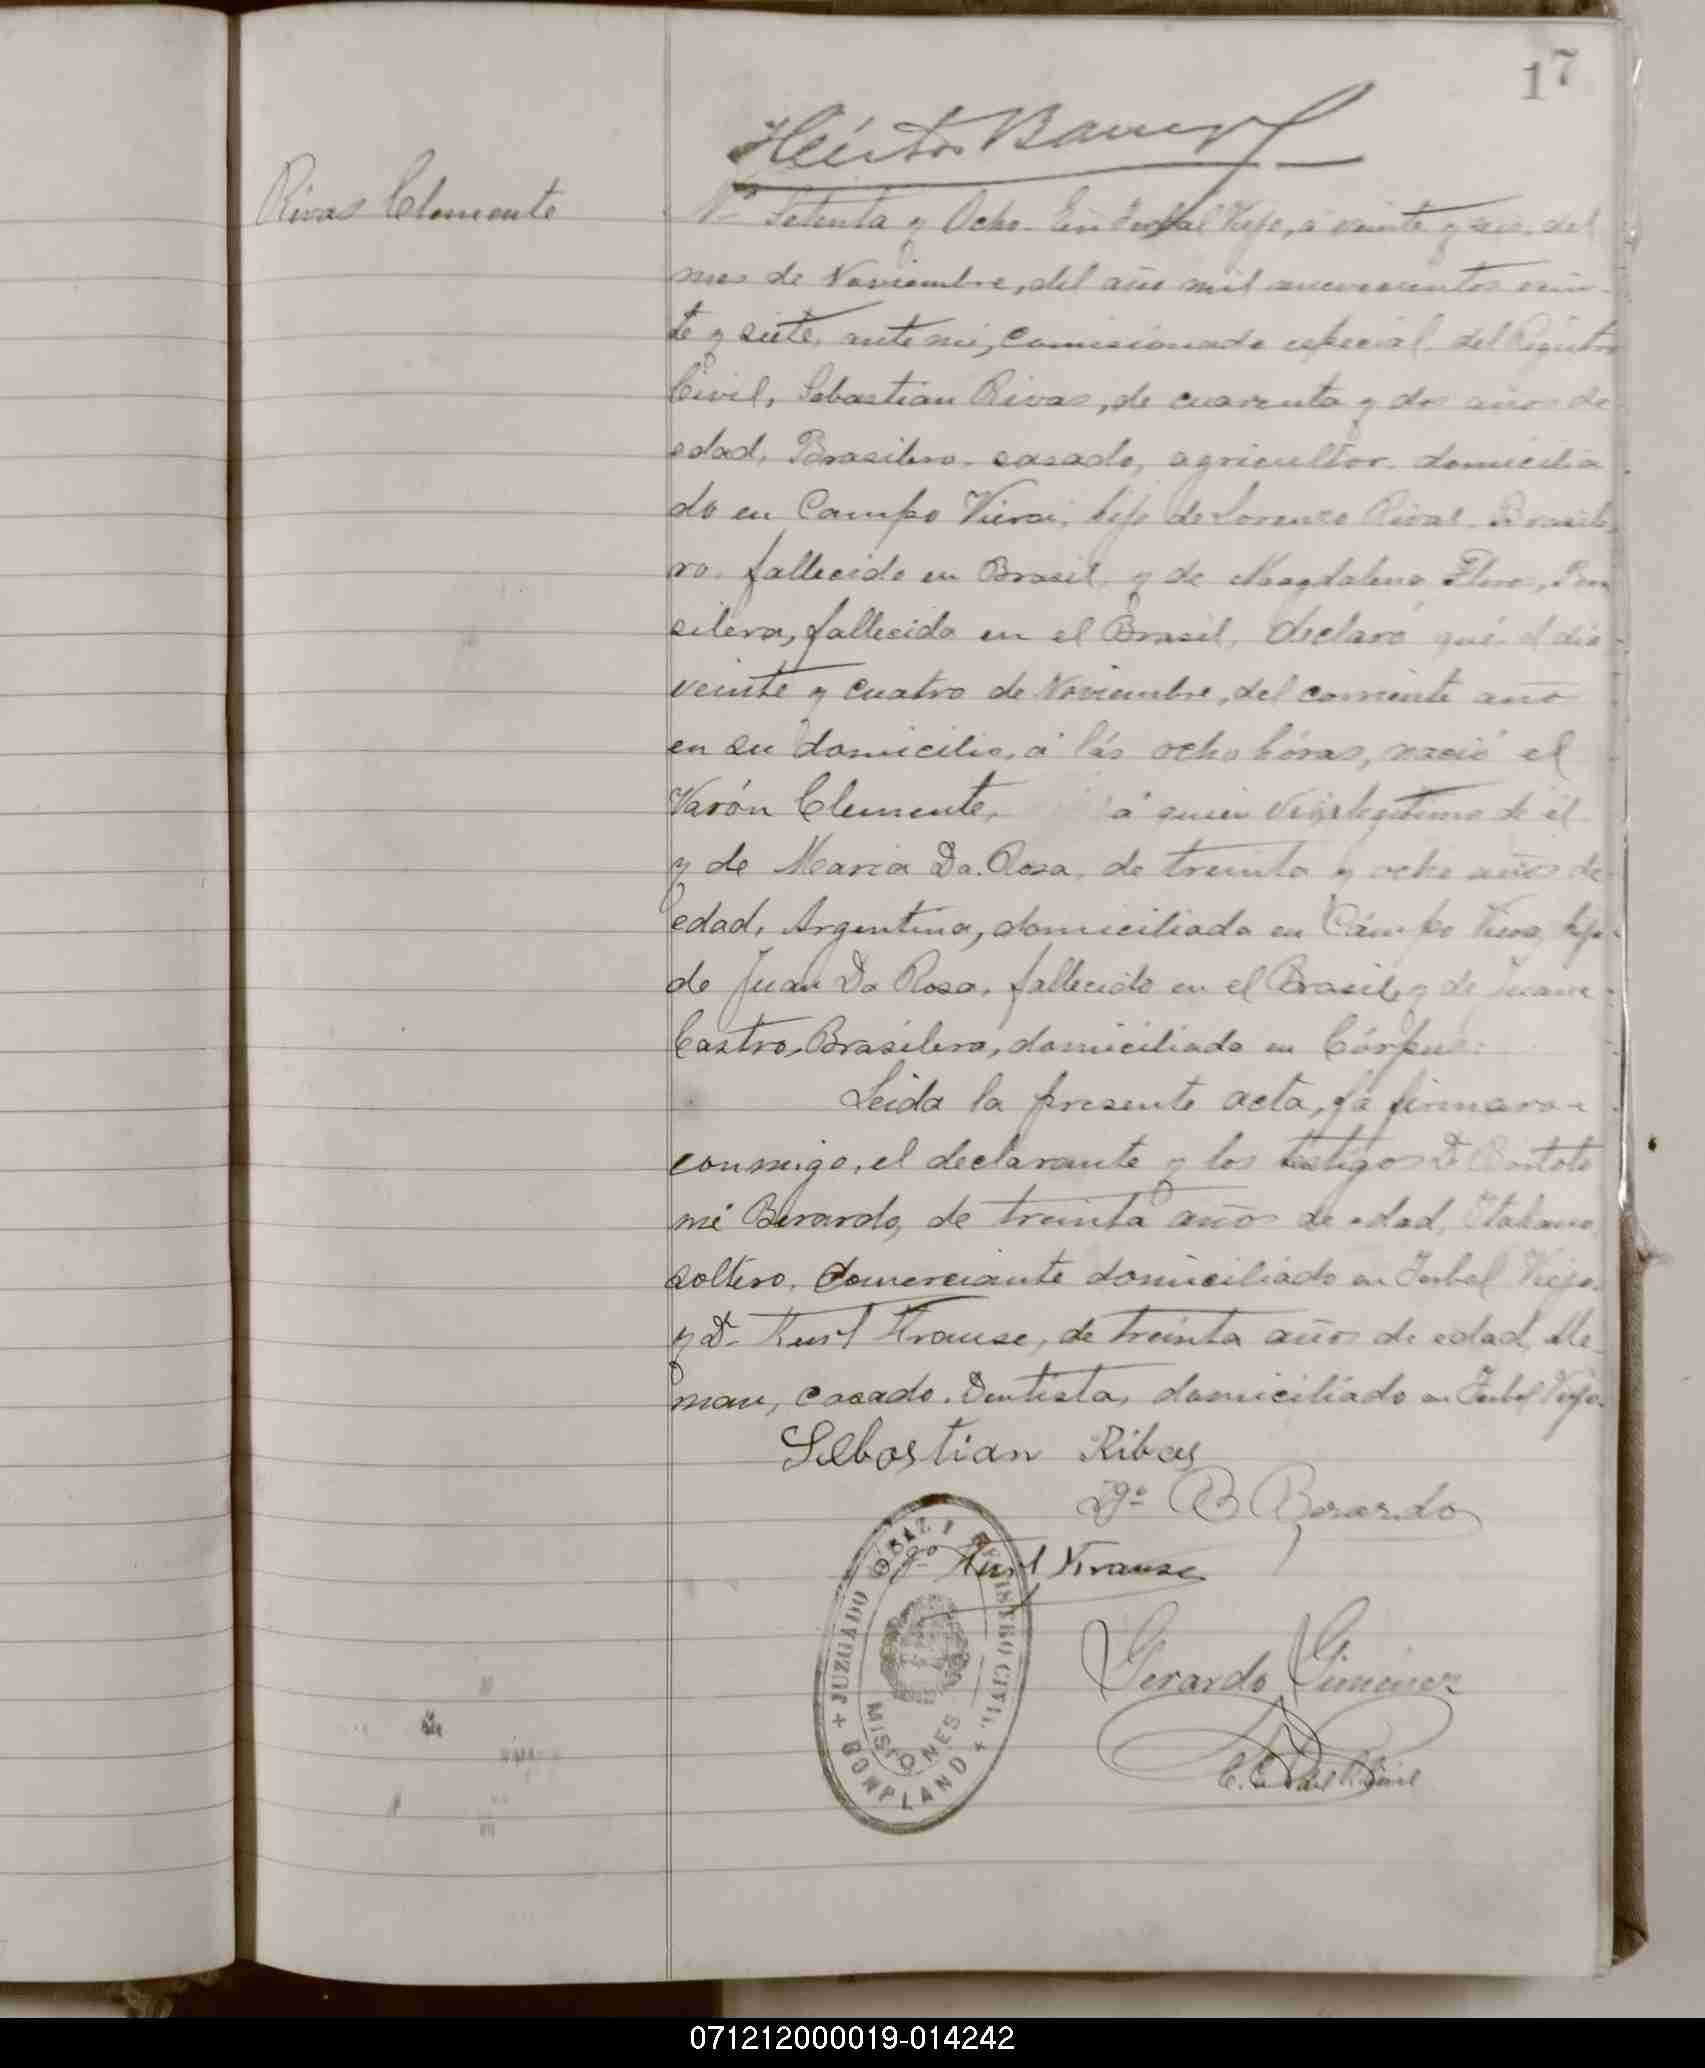 17
Héctor
Rivas Clemente
Nº Setenta y Ocho. En Yerbal Viejo, á veinte y seis, del
mes de Noviembre, del año mil novecientos vein-
te y siete, ante mi, Comisionado especial del Registro
Civil, Sebastian Rivas, de cuarenta y dos años de
edad, Brasilero, casado, agricultor, domicilia
do en Campo Viera, hijo de Lorenzo Rivas, Brasile
ro, fallecido en Brasil y de Magdalena Flores, Bra
silera, fallecida en el Brasil, declaró qué el dia
veinte y cuatro de Noviembre, del corriente año
en su domicilio, á lás ocho hóras, nació el
Varón Clemente, á quien legitimo de él
y de Maria Da Rosa, de treinta y ocho años de
edad, Argentina, domiciliada en Cámpo Viera, hija
de Juan Da Rosa, fallecido en el Brasil y de Juana
Castro, Brasilera, domiciliada en Córpus.
Leida la presente acta, la firmaron
conmigo, el declarante y los testigos Dn Bartolo
mé Berardo, de treinta años de edad, Italiano,
soltero, Comerciante domiciliado en Yerbal Viejo,
y Dn Kurt Krause, de treinta años de edad, Ale
man, casado, Dentista, domiciliado en Yerbal Viejo.
Sebastian Ribas
Tgo B Berardo
Tgo Kurt Krause
JUZGADO DE PAZ Y REGISTRO CIVIL
MISIONES
BONPLAND
Gerardo Gimenez
071212000019-014242